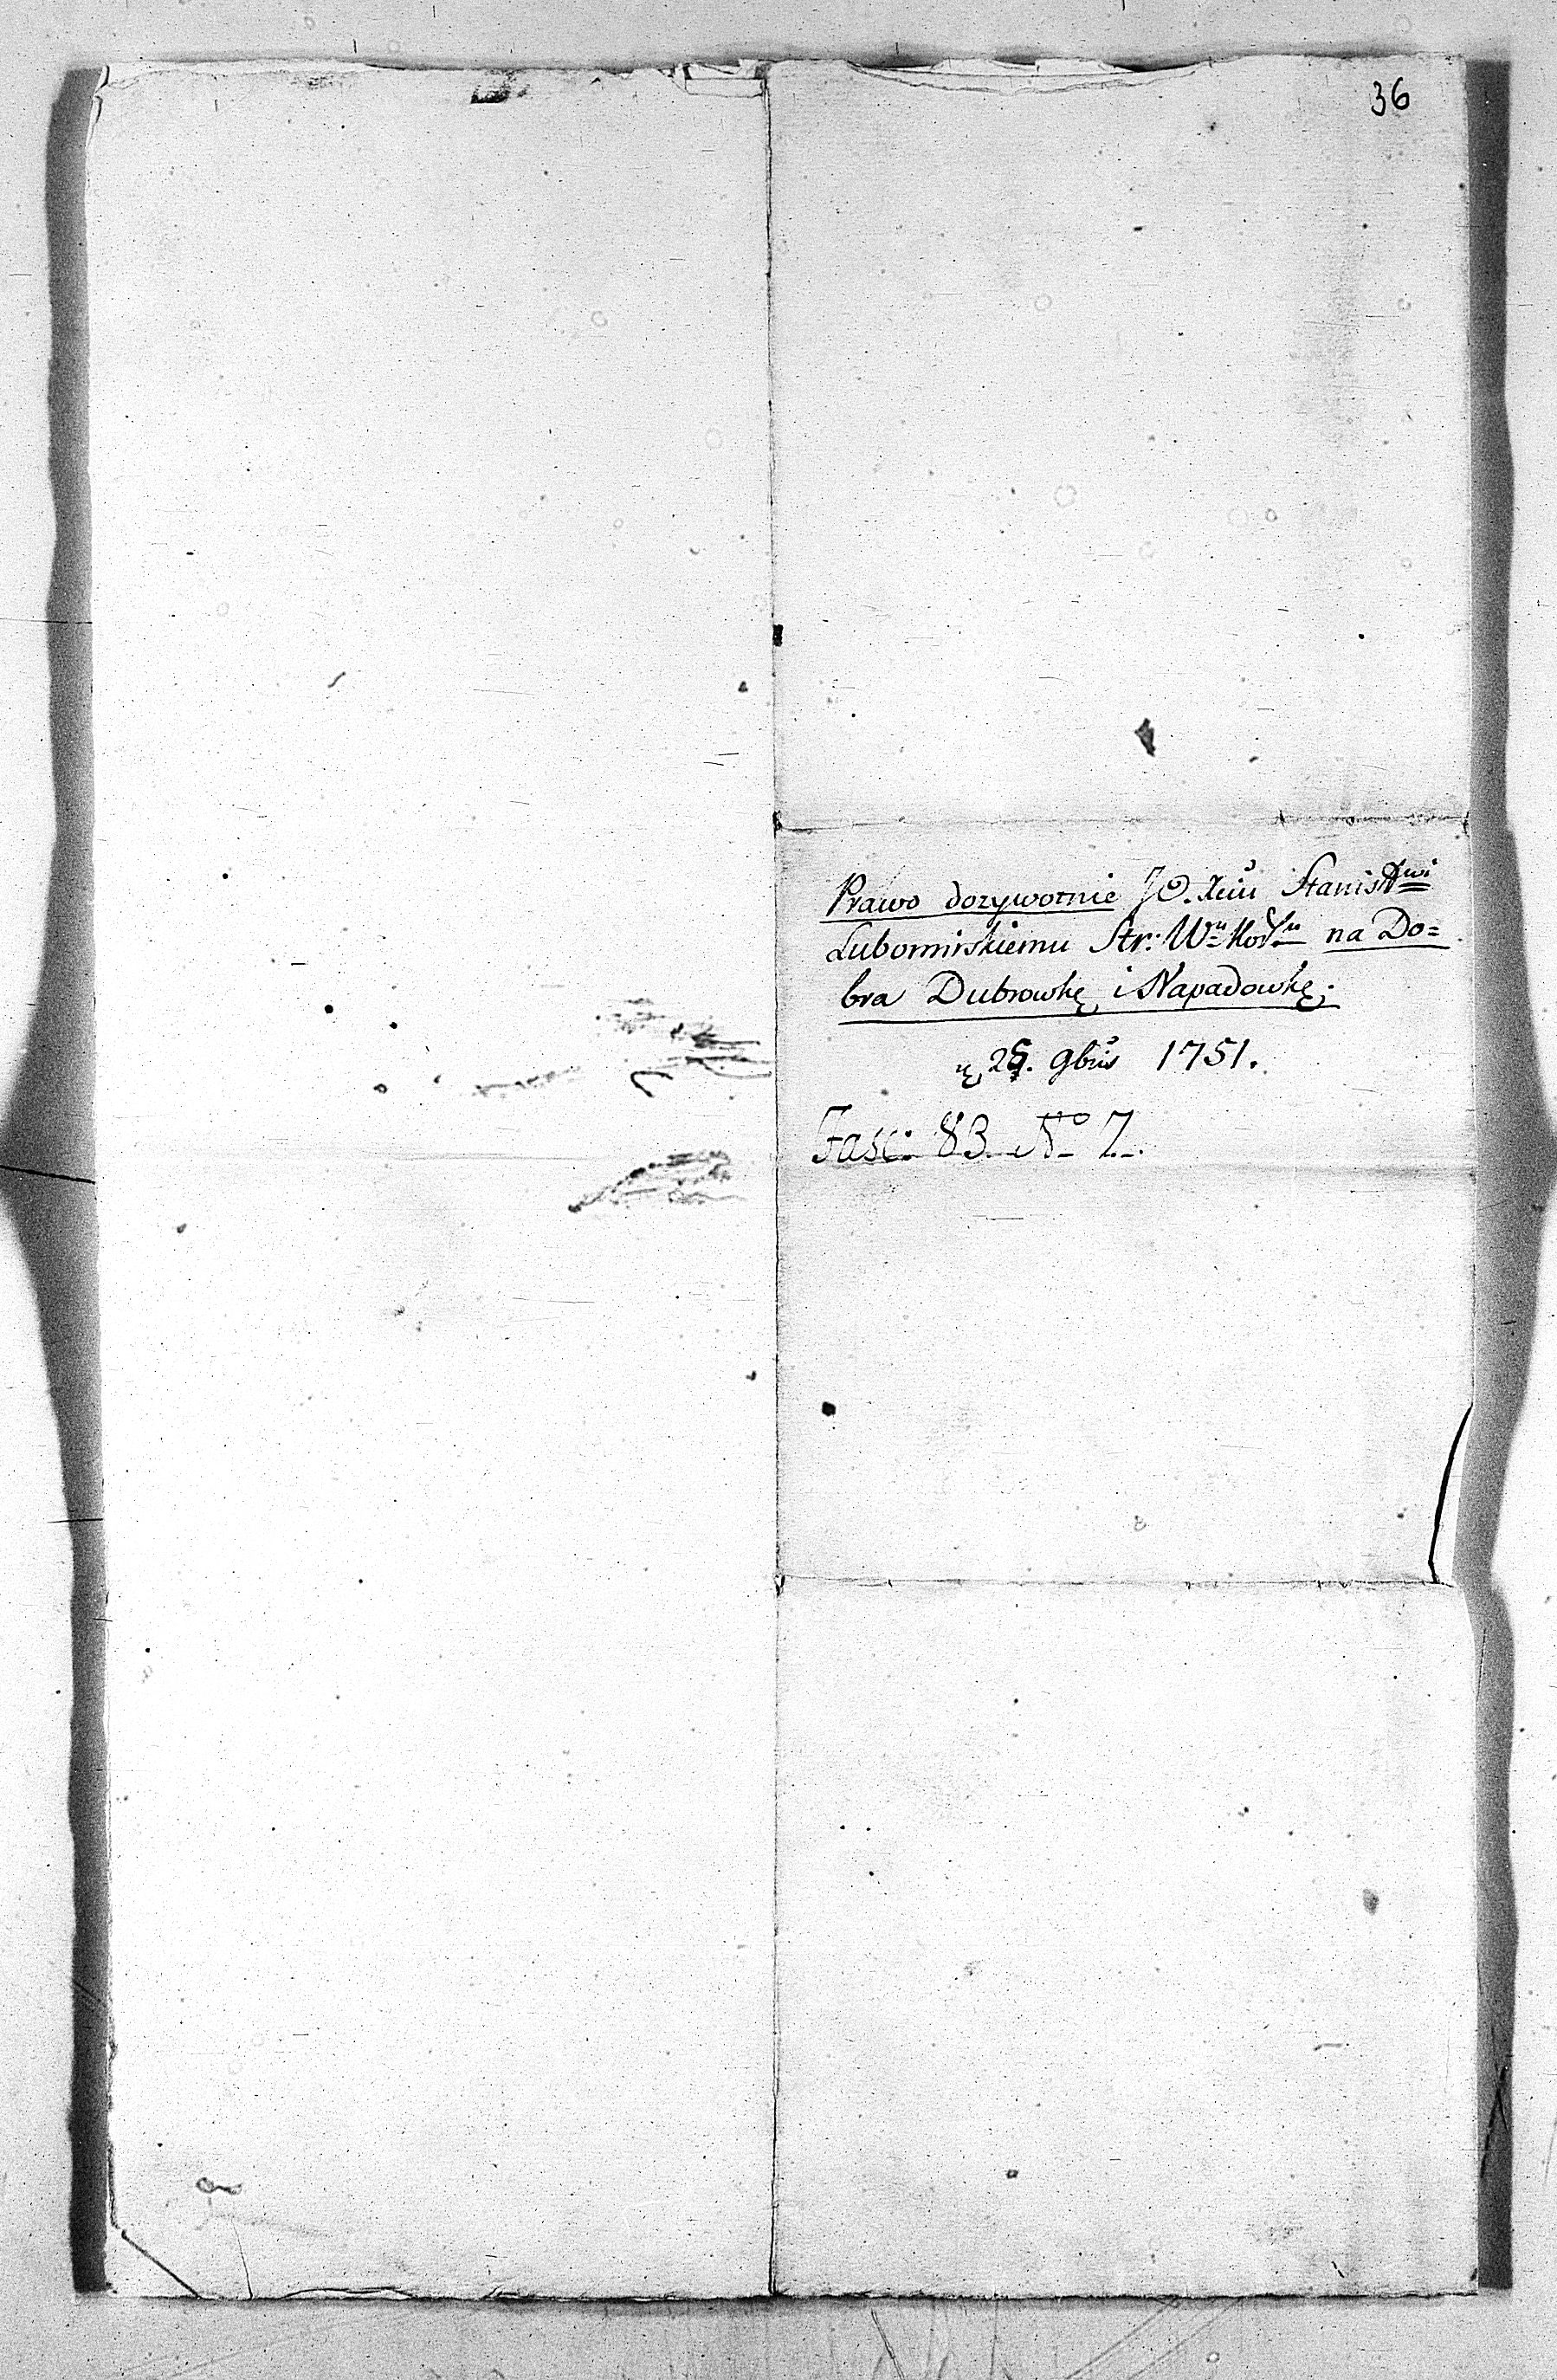 36
Prawo dozywotnie JO. Xciu Stanisłwi
Lubomirskiemu Str: Wu Korłu na Do=
bra Dubrowkę i Napadowkę.
9bris 1751.
Fasc: 83. No 7.